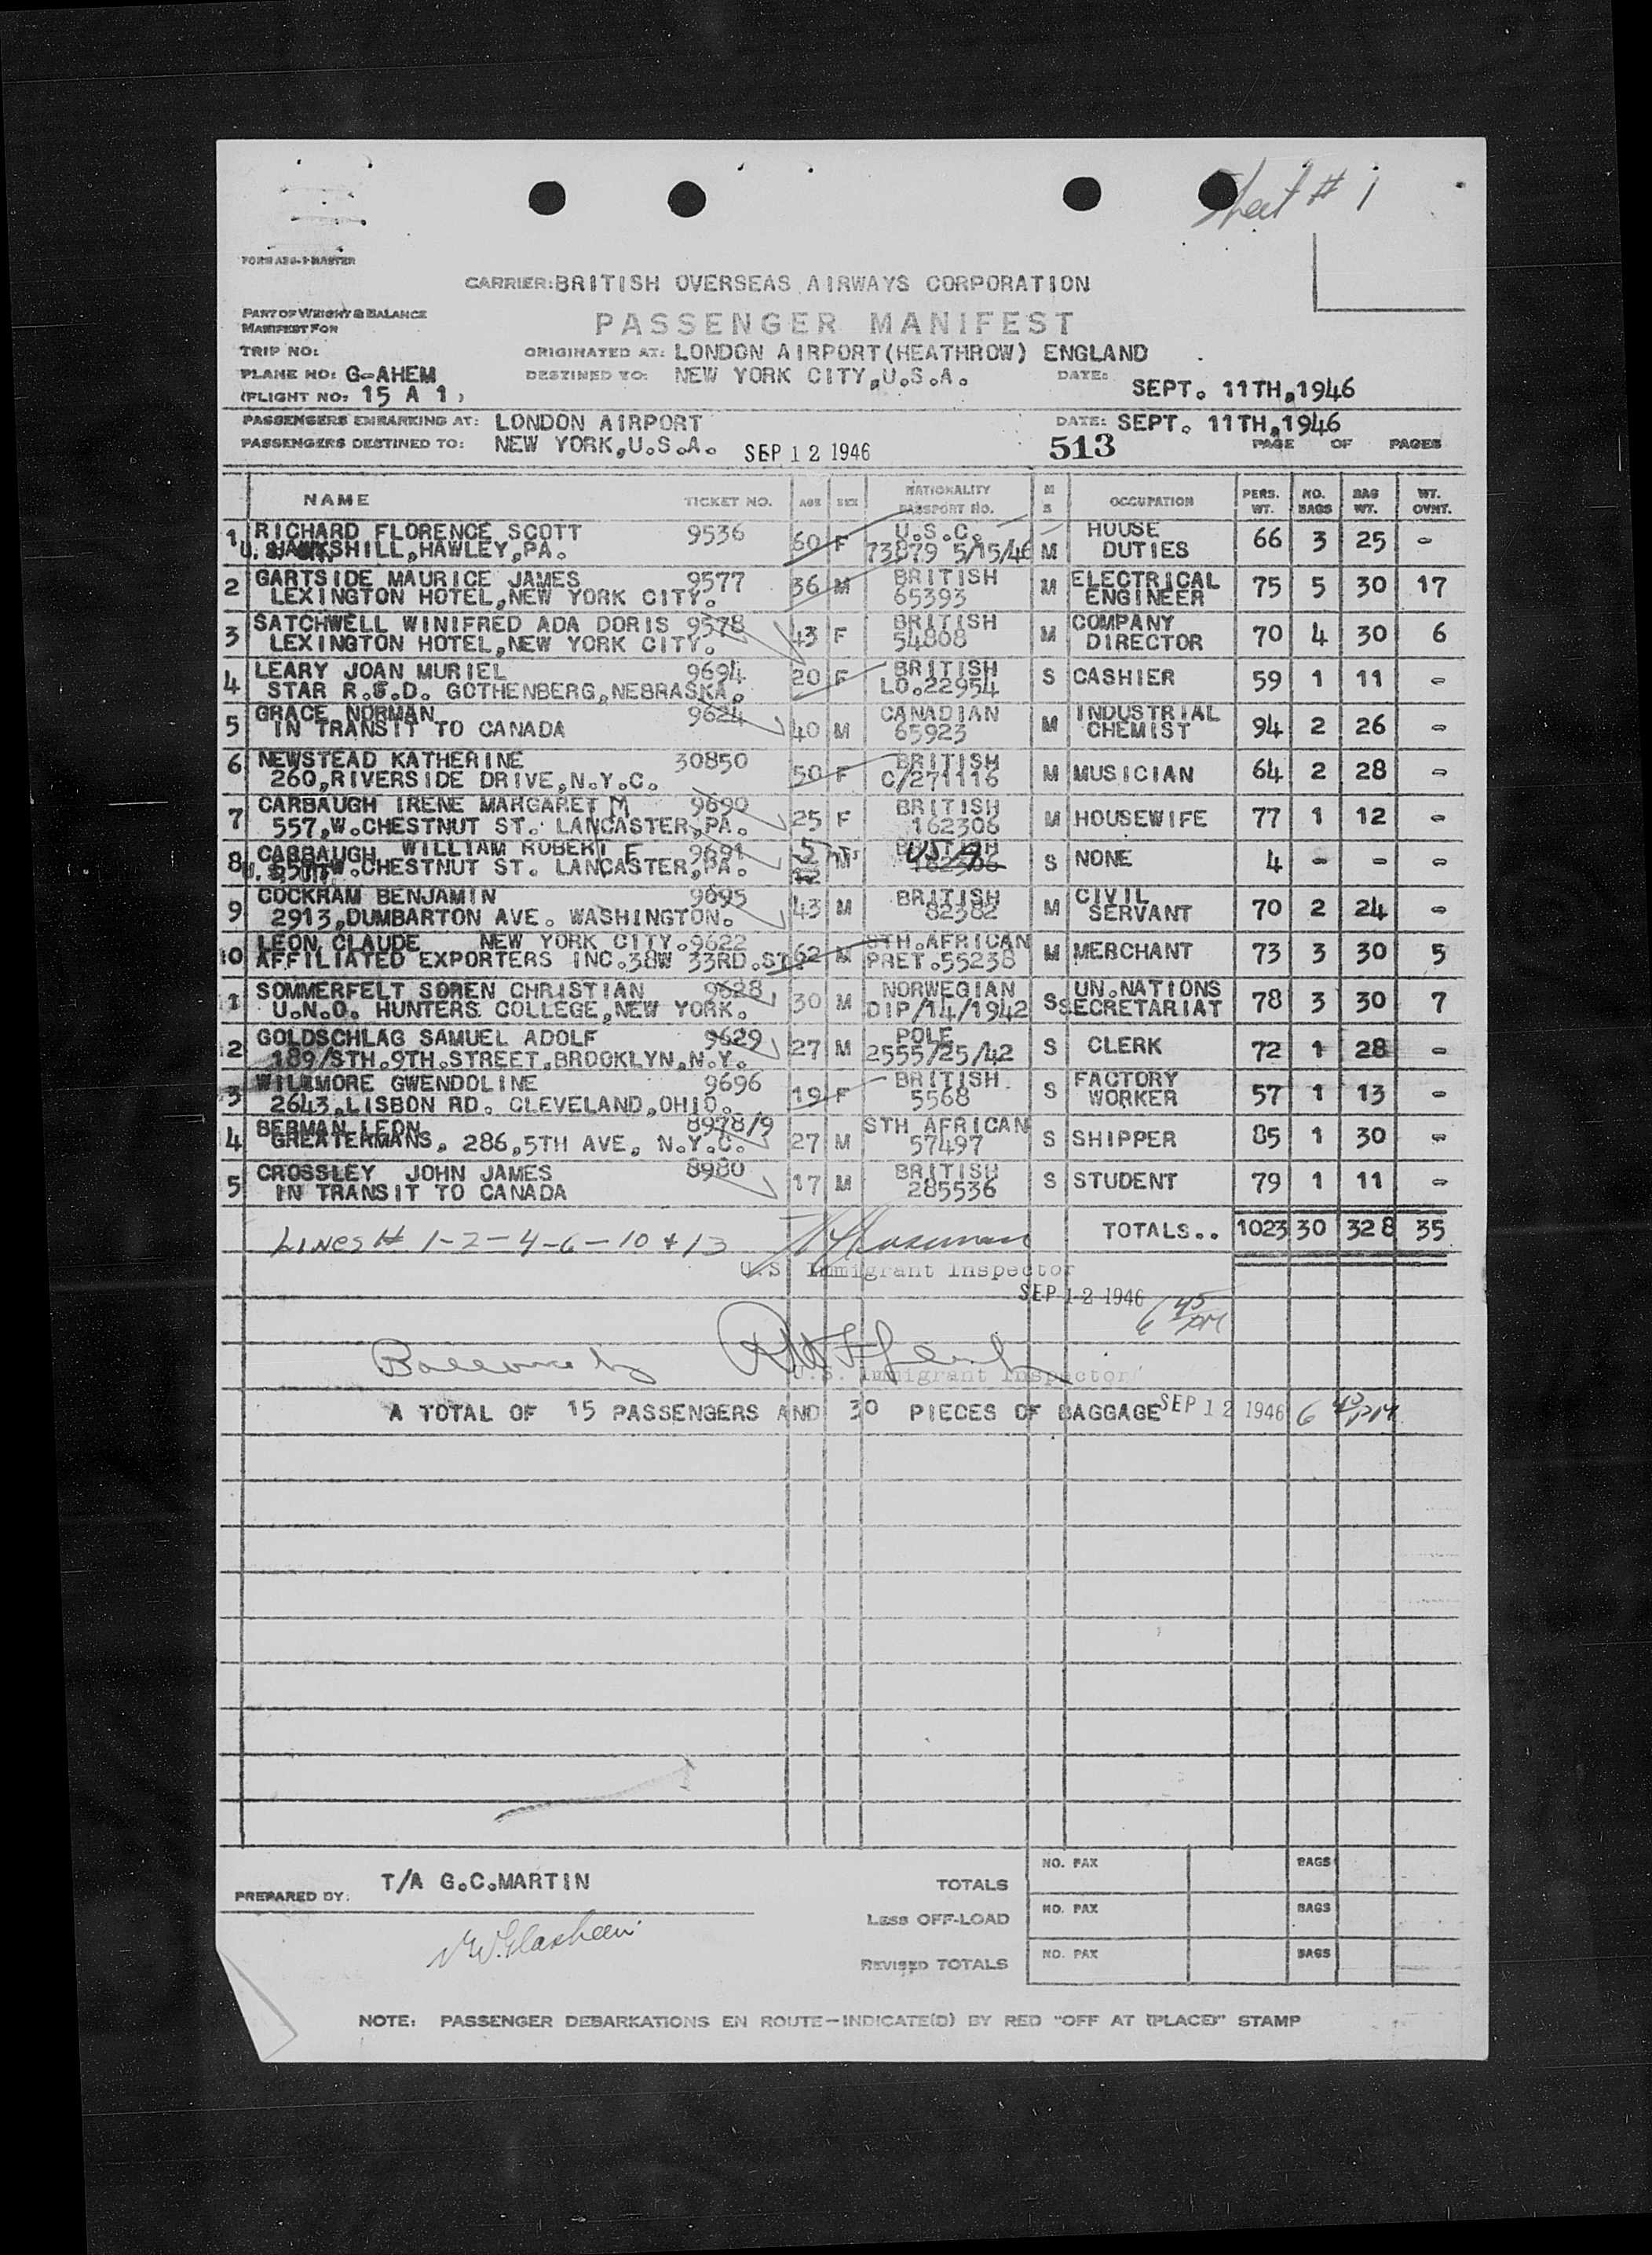 Sheet # 1
FORM ABG-1-MASTER
CARRIER: BRITISH OVERSEAS AIRWAYS CORPORATION
PART OF WEIGHT & BALANCE
MANIFEST FOR
PASSENGER MANIFEST
TRIP NO:
ORIGINATED AT: LONDON AIRPORT(HEATHROW) ENGLAND
PLANE NO: G-AHEM
DESTINED TO: NEW YORK CITY,U.S.A. DATE: SEPT. 11TH,1946
(FLIGHT NO: 15 A 1)
PASSENGERS EMBARKING AT: LONDON AIRPORT DATE: SEPT. 11TH,1946
PASSENGERS DESTINED TO: NEW YORK,U.S.A. SEP 12 1946 513 PAGE OF PAGES
NAME TICKET NO. AGE SEX NATIONALITY PASSPORT NO. M S OCCUPATION PERS. WT. NO. BAGS BAG WT. WT. OVNT.
1 RICHARD FLORENCE SCOTT 9536 60 F U.S.C. M HOUSE 66 3 25 -
HILL,HAWLEY,PA. 73879 5/15/46 DUTIES
2 GARTSIDE MAURICE JAMES 9577 36 M BRITISH M ELECTRICAL 75 5 30 17
LEXINGTON HOTEL,NEW YORK CITY. 65393 ENGINEER
3 SATCHWELL WINIFRED ADA DORIS 9578 43 F BRITISH M COMPANY 70 4 30 6
LEXINGTON HOTEL,NEW YORK CITY. 54808 DIRECTOR
4 LEARY JOAN MURIEL 9694 20 F BRITISH S CASHIER 59 1 11 -
STAR R.F.D. GOTHENBERG,NEBRASKA. LO.22954
5 GRACE NORMAN 9624 40 M CANADIAN M INDUSTRIAL 94 2 26 -
IN TRANSIT TO CANADA 65923 CHEMIST
6 NEWSTEAD KATHERINE 30850 50 F BRITISH M MUSICIAN 64 2 28 -
260,RIVERSIDE DRIVE,N.Y.C. C/271116
7 CARBAUGH IRENE MARGARET M 9690 25 F BRITISH M HOUSEWIFE 77 1 12 -
557,W.CHESTNUT ST. LANCASTER,PA. 162306
8 CARBAUGH WILLIAM ROBERT F 9691 5 M BRITISH S NONE 4 - - -
557 W.CHESTNUT ST. LANCASTER,PA. 162306
9 COCKRAM BENJAMIN 9695 43 M BRITISH M CIVIL 70 2 24 -
2913,DUMBARTON AVE. WASHINGTON. 82382 SERVANT
10 LEON CLAUDE NEW YORK CITY.9622 62 M STH.AFRICAN M MERCHANT 73 3 30 5
AFFILIATED EXPORTERS INC.38W 33RD.ST. PRET.55238
1 SOMMERFELT SOREN CHRISTIAN 9628 30 M NORWEGIAN S UN.NATIONS 78 3 30 7
U.N.O. HUNTERS COLLEGE,NEW YORK. DIP/14/1942 SECRETARIAT
2 GOLDSCHLAG SAMUEL ADOLF 9629 27 M POLE S CLERK 72 1 28 -
189/STH.9TH.STREET,BROOKLYN,N.Y. 2555/25/42
3 WILLMORE GWENDOLINE 9696 19 F BRITISH S FACTORY 57 1 13 -
2643,LISBON RD. CLEVELAND,OHIO. 5568 WORKER
4 BERMAN LEON 8978/9 27 M STH AFRICAN S SHIPPER 85 1 30 -
GREATERMANS, 286,5TH AVE, N.Y.C. 57497
5 CROSSLEY JOHN JAMES 8980 17 M BRITISH S STUDENT 79 1 11 -
IN TRANSIT TO CANADA 285536
Lines # 1-2-4-6-10 + 13 TOTALS.. 1023 30 328 35
U.S. Immigrant Inspector
SEP 12 1946 6 45 PM
Ballance by
U.S. Immigrant Inspector
A TOTAL OF 15 PASSENGERS AND 30 PIECES OF BAGGAGE SEP 12 1946 6 PM
PREPARED BY: T/A G.C.MARTIN
TOTALS NO. PAX BAGS
LESS OFF-LOAD NO. PAX BAGS
REVISED TOTALS NO. PAX BAGS
NOTE: PASSENGER DEBARKATIONS EN ROUTE-INDICATE(D) BY RED "OFF AT (PLACE)" STAMP